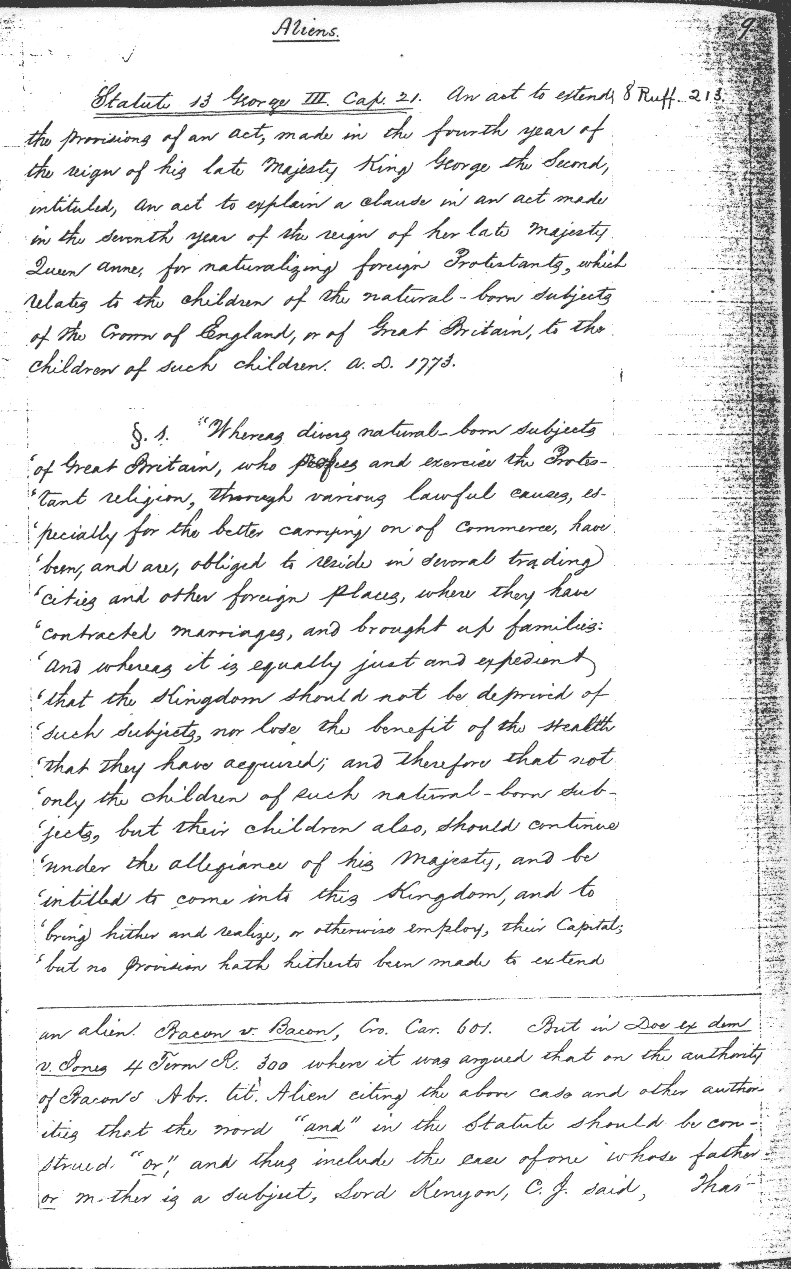 Aliens.
9
Statute 13 George III. Cap. 21. An act to extend 8 Ruff. 213.
the provisions of an act, made in the fourth year of
the reign of his late Majesty King George the Second,
intituled, An act to explain a clause in an act made
in the seventh year of the reign of her late Majesty
Queen Anne, for naturalizing foreign Protestants, which
relates to the children of the natural-born subjects
of the Crown of England, or of Great Britain, to the
children of such children. A.D. 1773.
§. 1. "Whereas divers natural-born subjects
'of Great Britain, who profess and exercise the Protes-
'tant religion, through various lawful causes, es-
'pecially for the better carrying on of commerce, have
'been, and are, obliged to reside in several trading
'cities and other foreign places, where they have
'contracted marriages, and brought up families:
'and whereas it is equally just and expedient
'that the Kingdom should not be deprived of
'such subjects, nor lose the benefit of the wealth
'that they have acquired; and therefore that not
'only the children of such natural-born sub-
'jects, but their children also, should continue
'under the allegiance of his Majesty, and be
'intitled to come into this Kingdom, and to
'bring hither and realize, or otherwise employ, their Capital;
'but no provision hath hitherto been made to extend
an alien. Bacon v. Bacon, Cro. Car. 601. But in Doe ex dem
v. Jones 4 Term R. 300 where it was argued that on the authority
of Bacon's Abr. tit. Alien citing the above case and other author-
ities that the word "and" in the Statute should be con-
strued "or", and thus include the case of one whose father
or mother is a subject, Lord Kenyon, C. J. said,